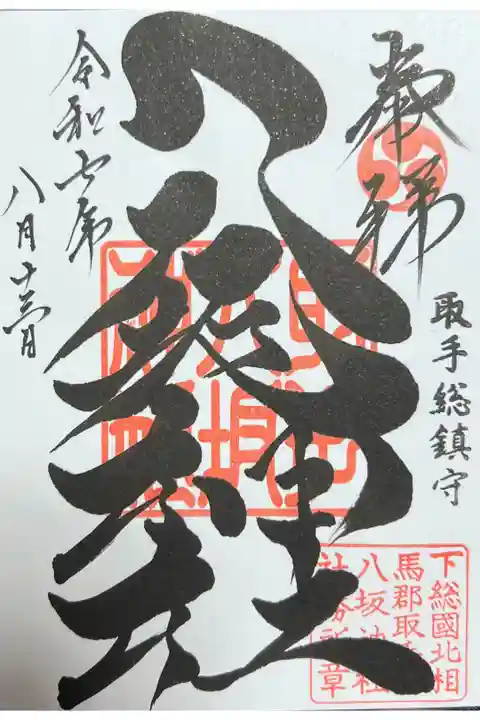 奉拝
取手総鎮守
八坂神社
令和七年
八月十六日
下総國北相
馬郡取手
八坂神社
社務所章